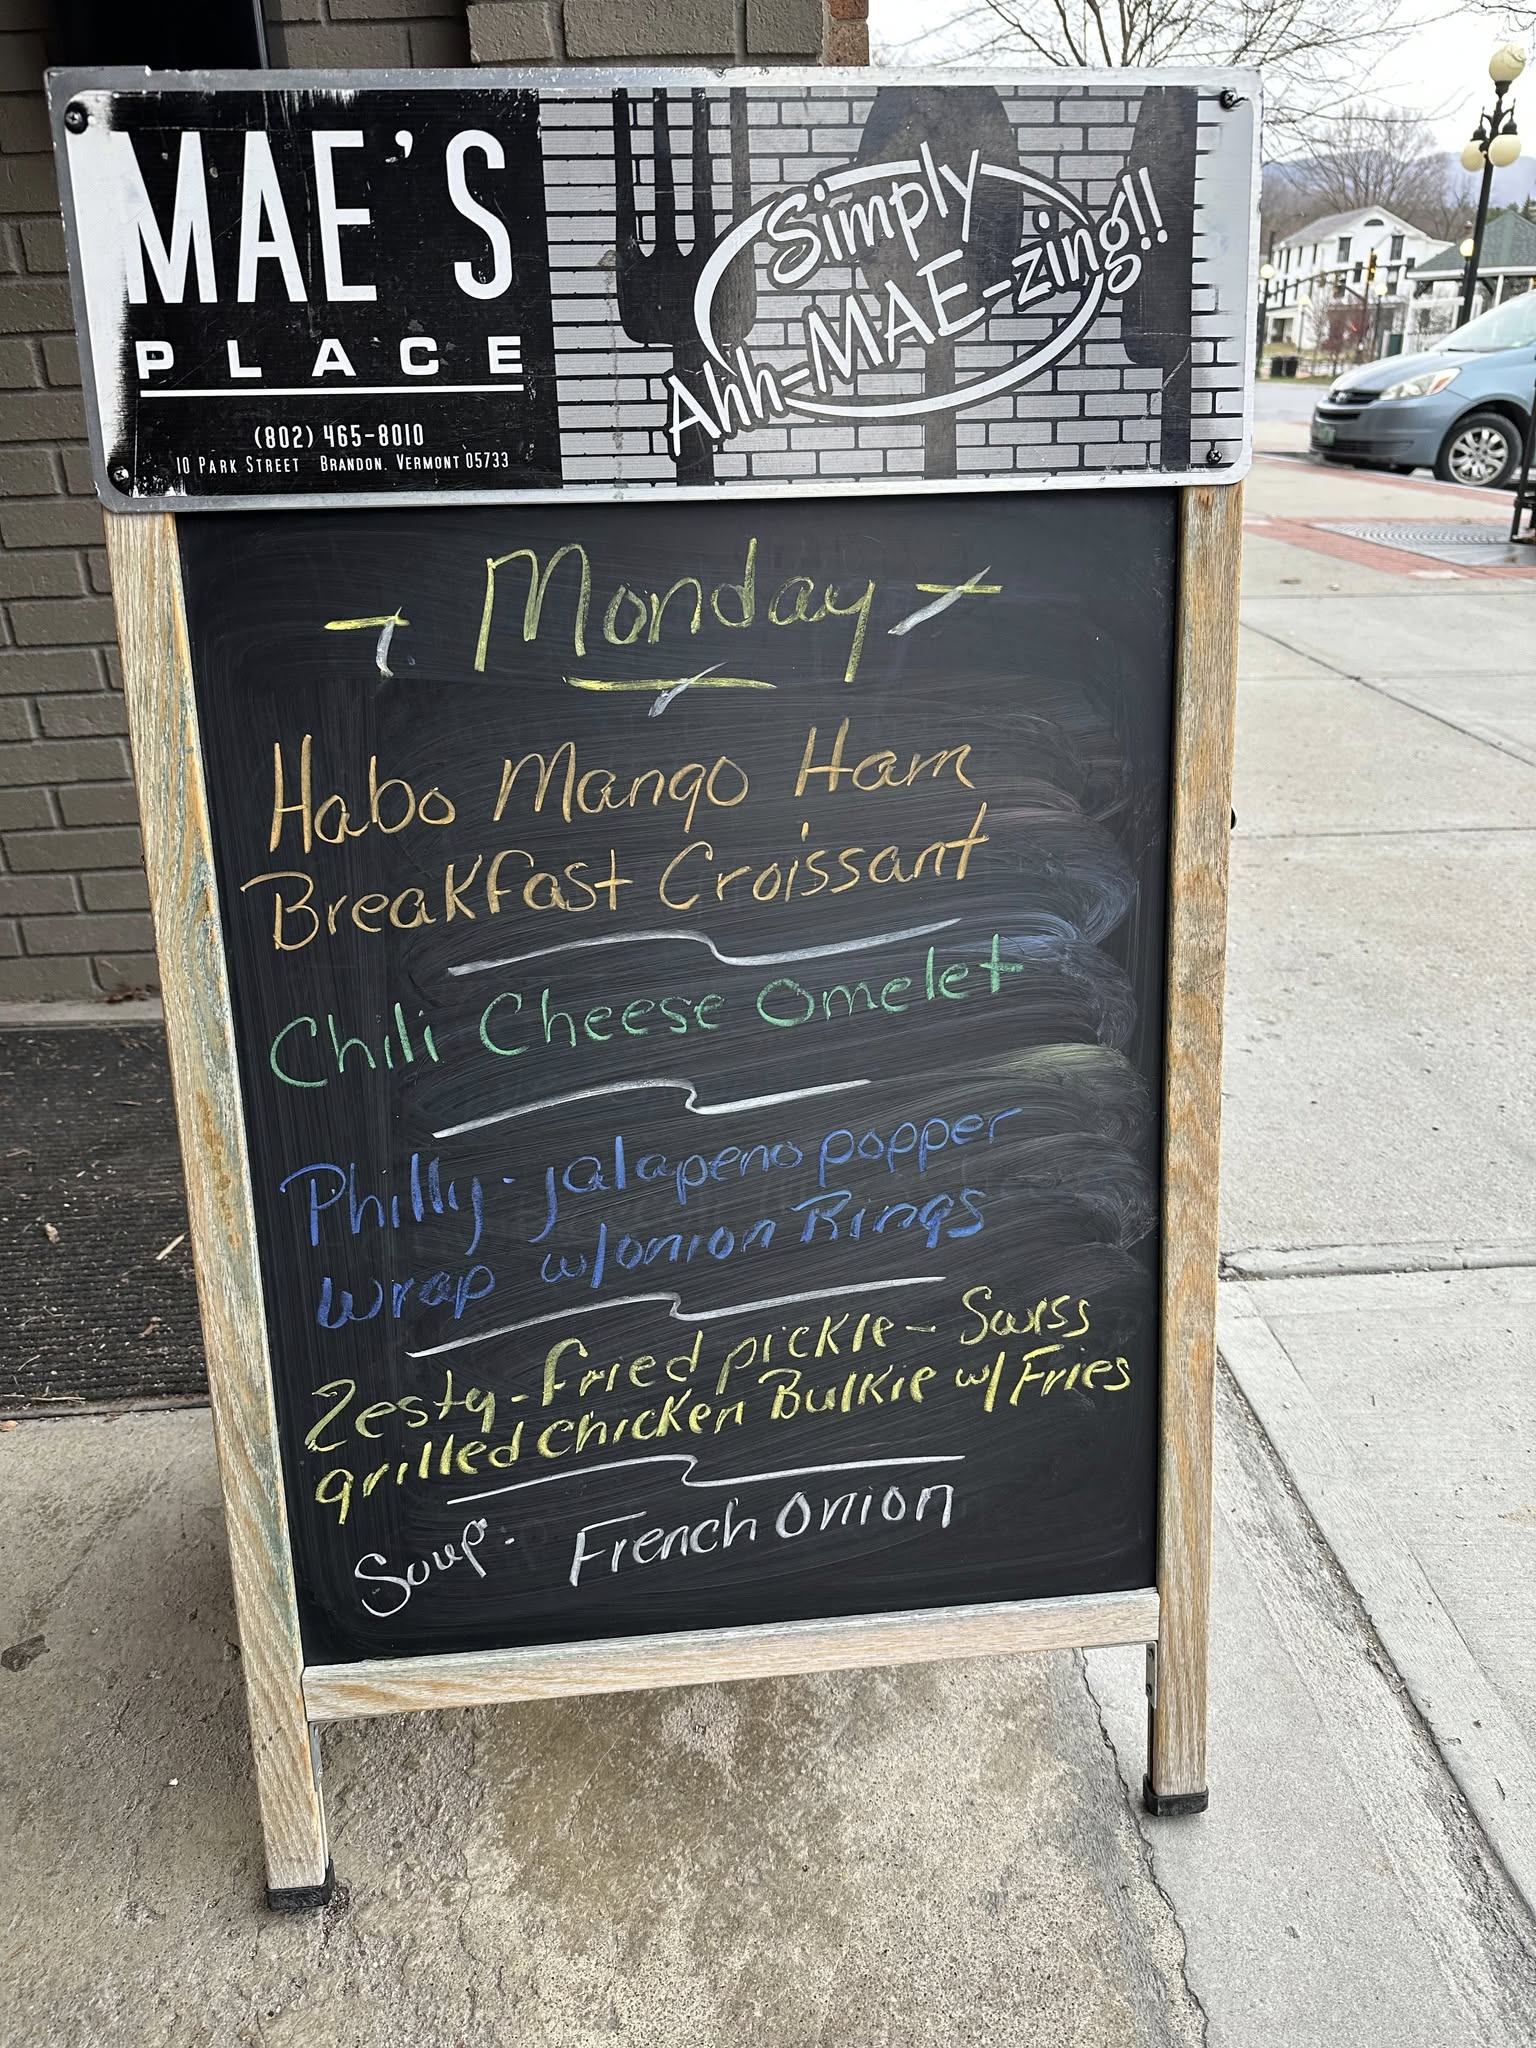 MAE'S
PLACE
(802) 465-8010
10 PARK STREET BRANDON, VERMONT 05733
Simply
Ahh-MAE-zing!!
Monday
Habo Mango Ham
Breakfast Croissant
Chili Cheese Omelet
Philly-jalapeno popper
wrap w/onion Rings
Zesty-fried pickle-Swiss
grilled chicken Bulkie w/Fries
Soup: French Onion